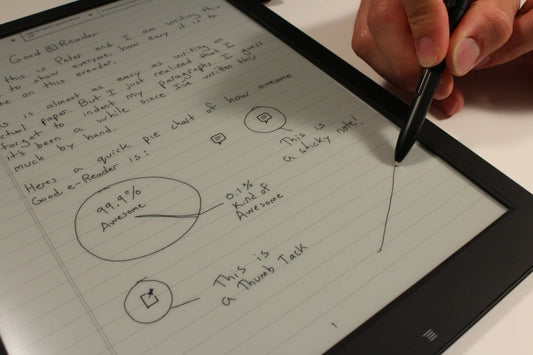 Good e Reader
this is Peter and I am writing this
to show everyone how easy it is to
on this ereader.
is almost as easy as writing on
actual paper. But I just realized that I
forgot to indent my paragraphs. I guess
it's been a while since I've written this
much by hand.
Heres a quick pie chart of how awesome
Good e-Reader is:
This is
a sticky note!
99.9%
Awesome
0.1%
Kind of
Awesome
This is
a Thumb Tack
1